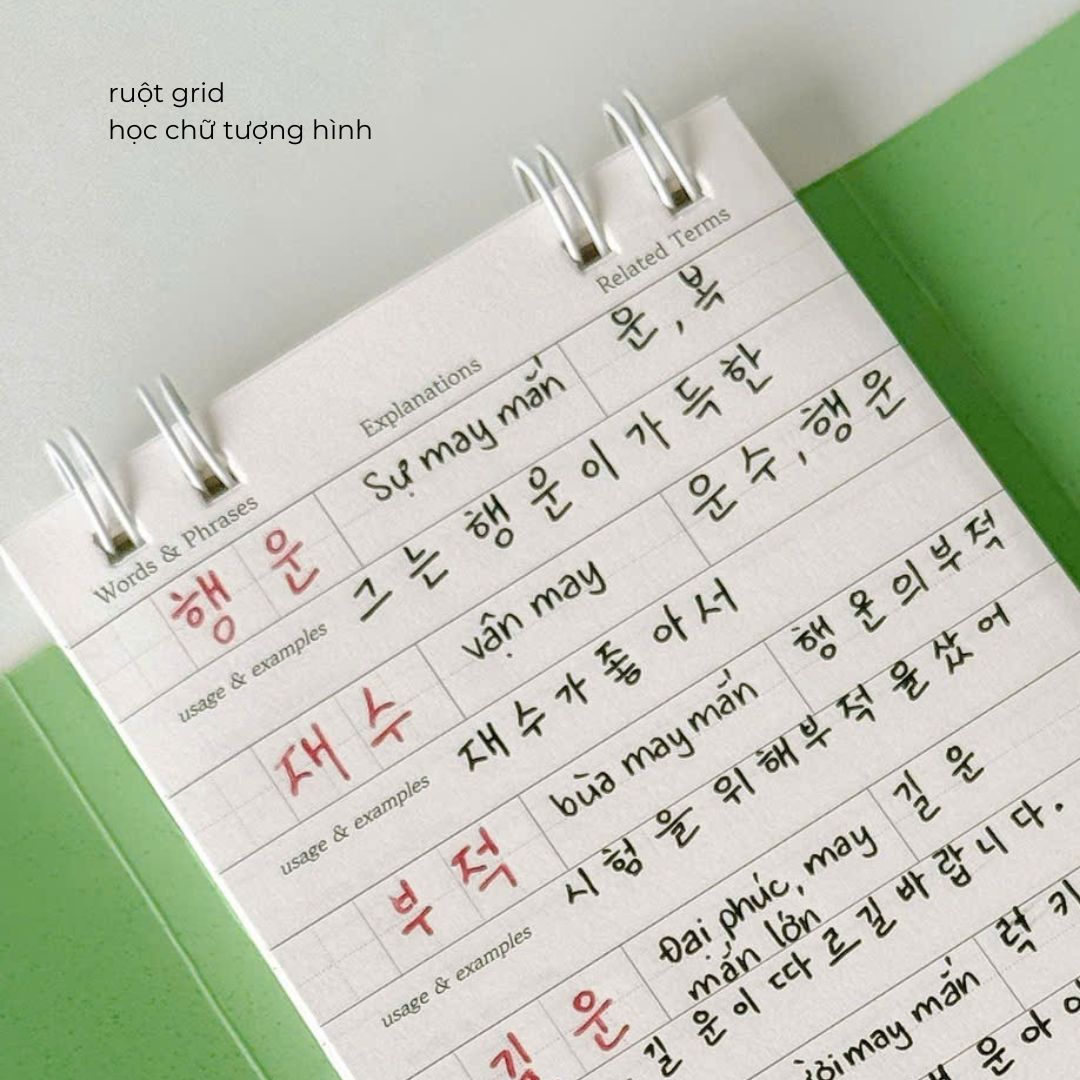 ruột grid
học chữ tượng hình
Words & Phrases Explanations Related Terms
행운 Sự may mắn 운, 복
usage & examples 그는 행운이 가득한
재수 vận may 운수, 행운
usage & examples 재수가 좋아서
부적 bùa may mắn 행운의 부적
usage & examples 시험을 위해 부적을 샀어
길운 Đại phúc, may mắn lớn 길운
길운이 따르길 바랍니다.
may mắn 럭키
운아